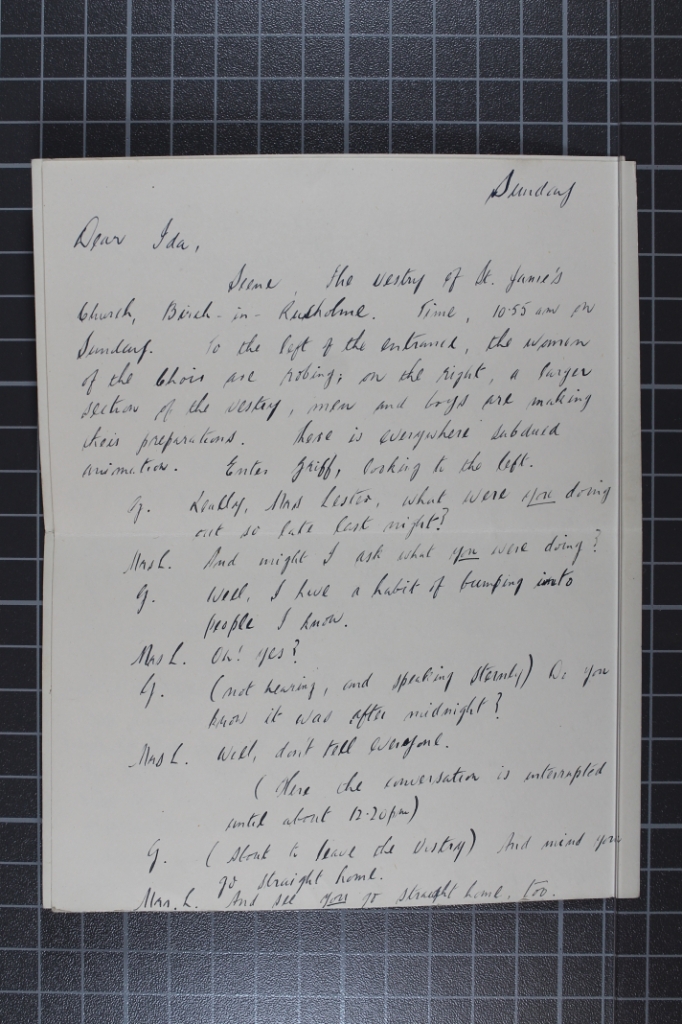 Sunday
Dear Ida,
Scene, the vestry of St. James's
Church, Birch-in-Rusholme. Time, 10.55 am on
Sunday. To the left of the entrance, the women
of the Choir are robing; on the right, a larger
section of the vestry, men and boys are making
their preparations. There is everywhere subdued
animation. Enter Griff, looking to the left.
G. Really, Mrs Lester, what were you doing
out so late last night?
Mrs L. And might I ask what you were doing?
G. Well, I have a habit of bumping into
people I know.
Mrs L. Oh! yes?
G. (not hearing, and speaking sternly) Do you
know it was after midnight?
Mrs L. Well, don't tell everyone.
(Here the conversation is interrupted
until about 12.20pm)
G. (About to leave the vestry) And mind you
go straight home.
Mrs. L. And see you go straight home, too.